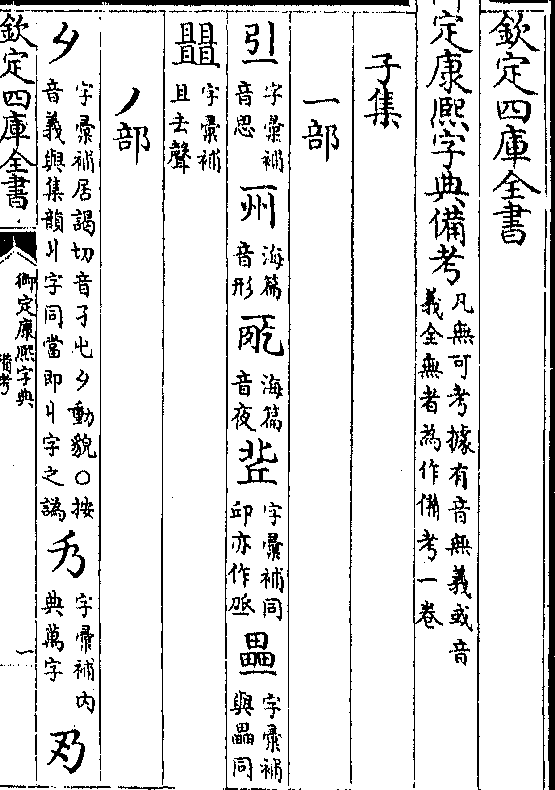 欽定四庫全書
定康熙字典備考 凡無可考據有音無義或音
義全無者為作備考一卷
子集
一部
字彙補
音思
海篇
音形
海篇
音夜
字彙補同
卭亦作丞
字彙補
與畾同
字彙補
且去聲
丿部
字彙補居謁切音孑㐄動貌〇按
音義與集韻丩字同當即丩字之譌
字彙補內
典萬字
欽定四庫全書
御定康熙字典
備考
一